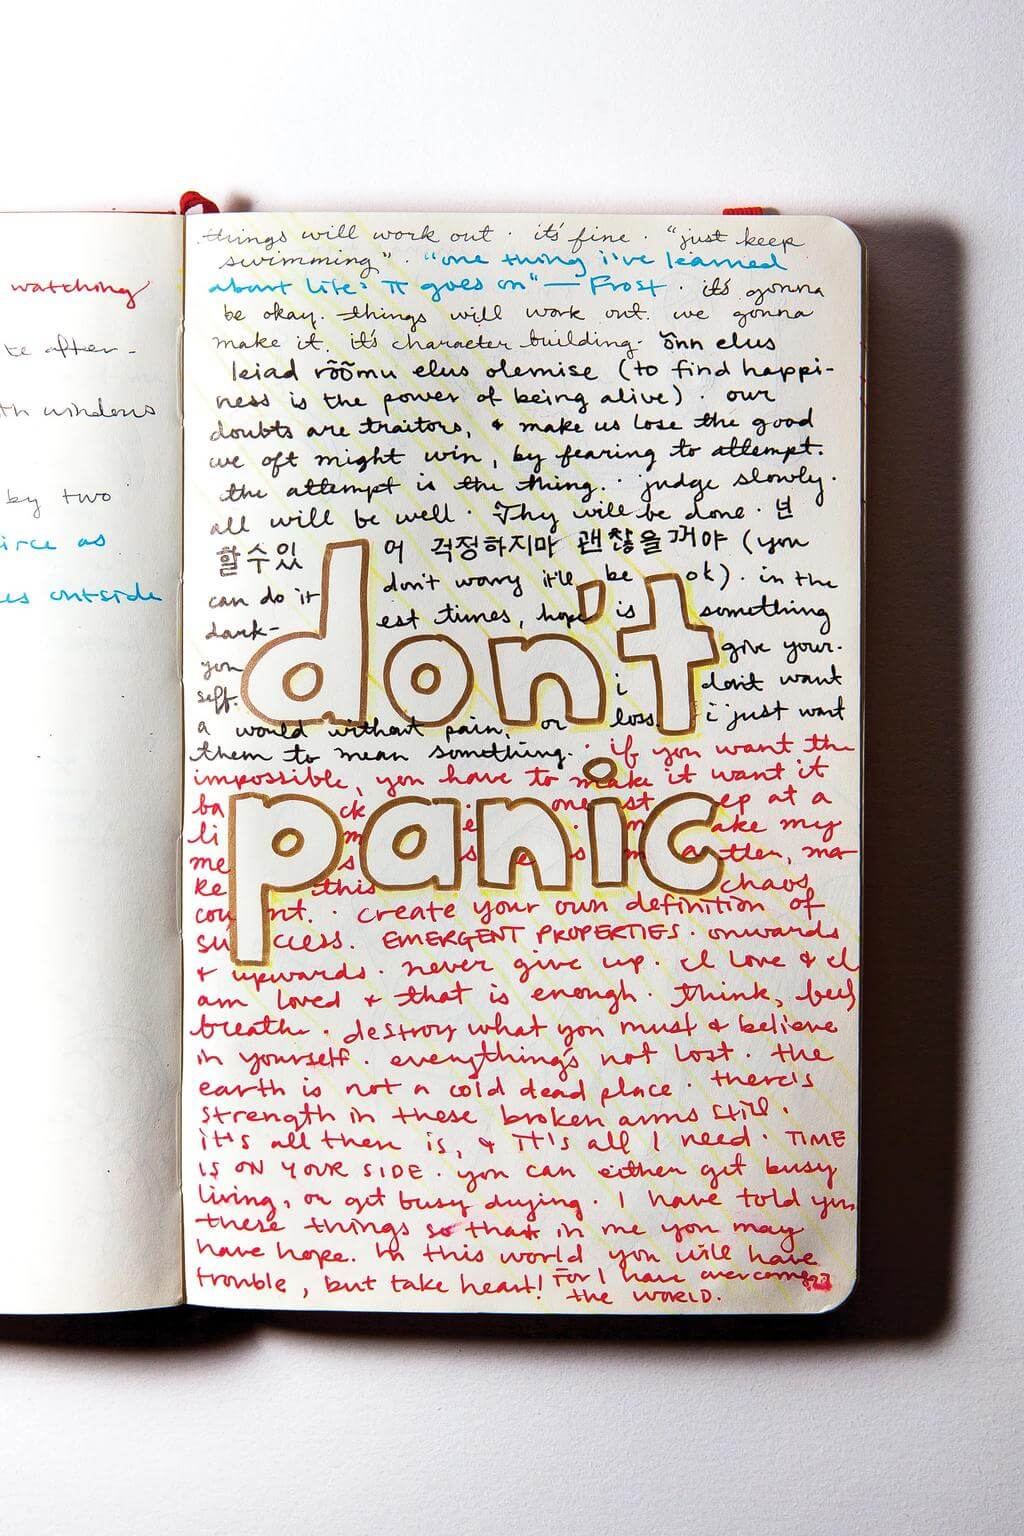 watching
te after-
th windows
by two
irce as
es outside
things will work out · it's fine · "just keep
swimming" · "one thing i've learned
about life: it goes on" — Frost · it's gonna
be okay. things will work out. we gonna
make it. it's character building. õnn elus
leiad rõõmu elus olemise (to find happi-
ness is the power of being alive) · our
doubts are traitors, & make us lose the good
we oft might win, by fearing to attempt.
the attempt is the thing. · judge slowly.
all will be well · Thy will be done · 넌
할 수 있 어 걱정하지마 괜찮을꺼야 (you
can do it don't worry it'll be ok) · in the
dark- est times, hope is something
you give your-
self. i don't want
a world without pain, or loss. i just want
them to mean something. · if you want the
impossible, you have to make it want it
ba ck one st ep at a
li m e m ake my
me s s s m a tter, ma
ke this chaos
cou nt. · create your own definition of
su ccess. EMERGENT PROPERTIES · onwards
& upwards. never give up · I love & I
am loved & that is enough · think, feel,
breathe · destroy what you must & believe
in yourself · everything's not lost · the
earth is not a cold dead place · there's
strength in these broken arms still ·
it's all there is, & it's all I need · TIME
IS ON YOUR SIDE · you can either get busy
living, or get busy dying · I have told you
these things so that in me you may
have hope. In this world you will have
trouble, but take heart! For I have overcome
the WORLD.
don't
panic